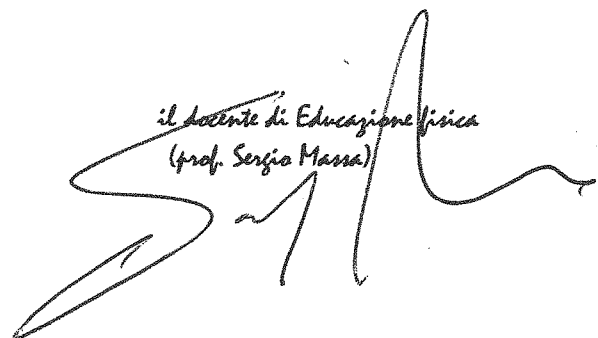 il docente di Educazione fisica
(prof. Sergio Massa)